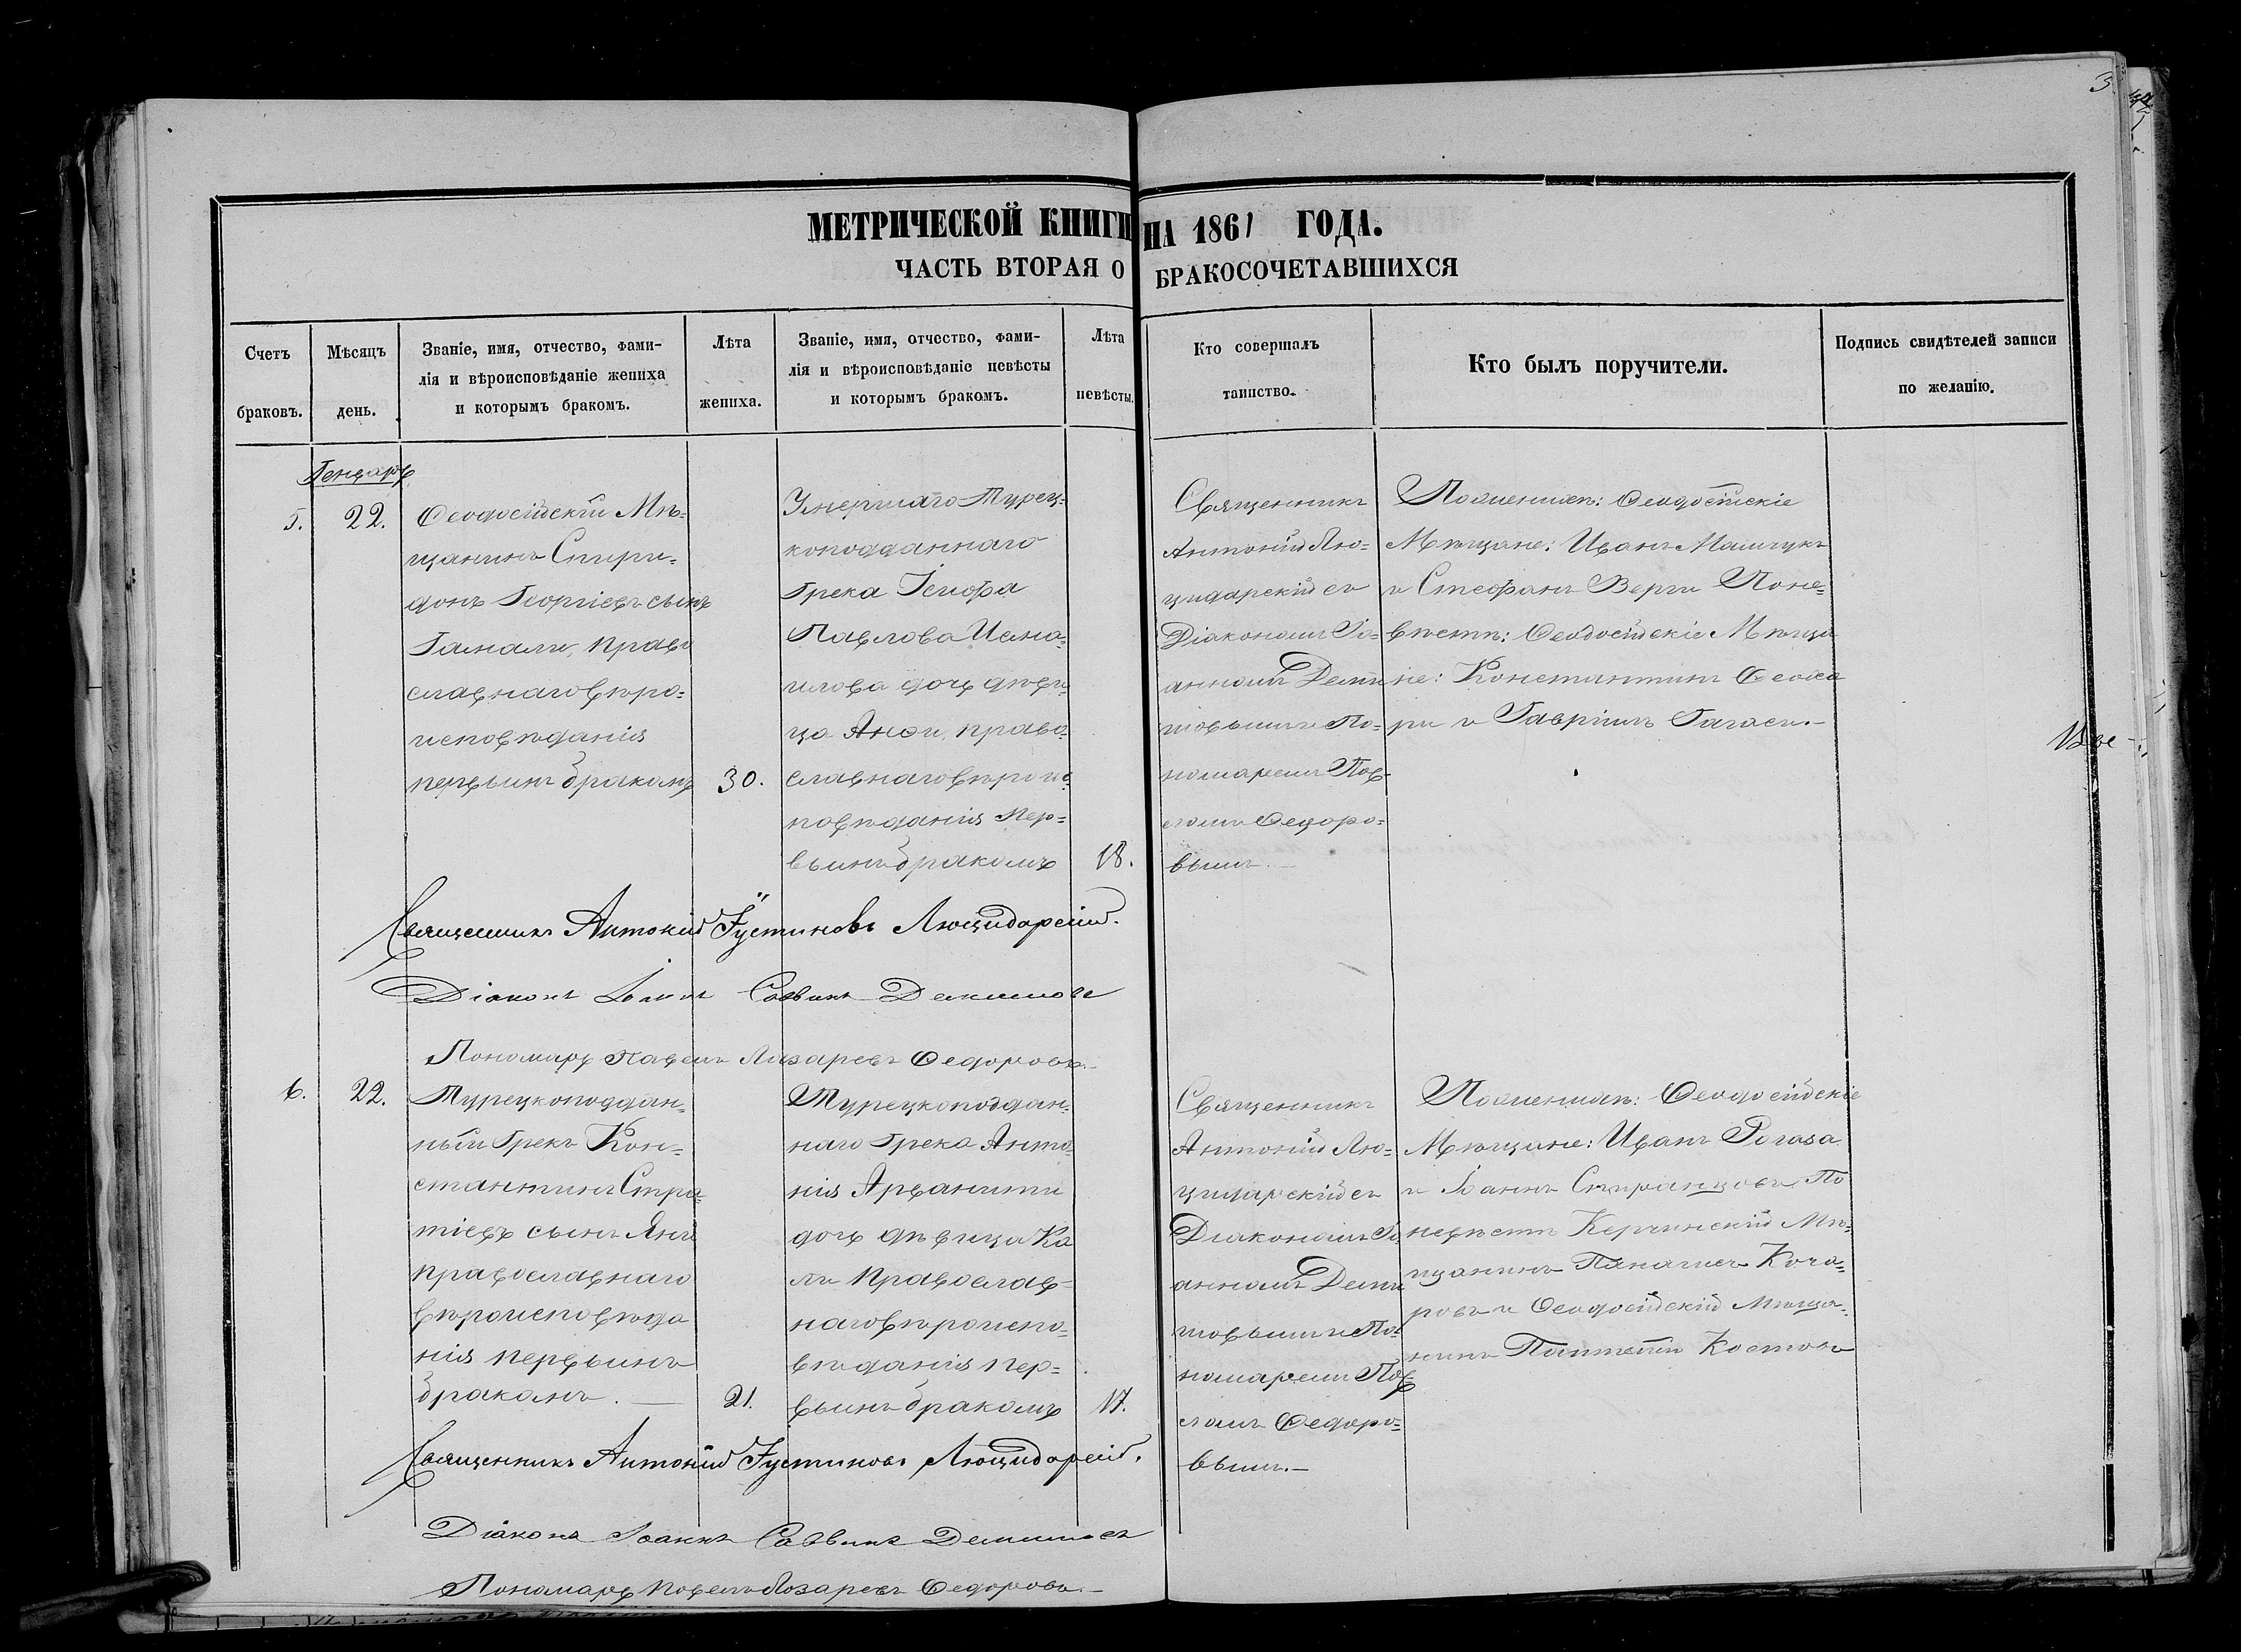 3
МЕТРИЧЕСКОЙ КНИГИ НА 1861 ГОДА.
ЧАСТЬ ВТОРАЯ О БРАКОСОЧЕТАВШИХСЯ
Счетъ браковъ.
Мѣсяцъ день.
Званіе, имя, отчество, фами-
лія и вѣроисповѣданіе жениха
и которымъ бракомъ.
Лѣта
жениха.
Званіе, имя, отчество, фами-
лія и вѣроисповѣданіе невѣсты
и которымъ бракомъ.
Лѣта
невѣсты.
Кто совершалъ
таинство.
Кто былъ поручители.
Подпись свидѣтелей записи
по желанію.
Генварь
5.
22.
Ѳеодосійскій Мѣ-
щанинъ Спири-
донъ Георгіевъ сынъ
православнаго вѣро-
исповѣданія
первымъ бракомъ
30.
Умершаго Турец-
коподданнаго
Грека
Павлова
дочь дѣви-
ца право-
славнаго вѣроис-
повѣданія пер-
вымъ бракомъ
18.
Священникъ
Антоній Лю-
цидарскій съ
Діакономъ Іо-
анномъ Деми-
товымъ и По-
номаремъ Пав-
ломъ Ѳедоро-
вымъ.
По женихѣ: Ѳеодосійскіе
Мѣщане: Иванъ
и Стефанъ Верги По не-
вѣстѣ: Ѳеодосійскіе Мѣща-
не: Константинъ
ри и Гавріилъ
Священникъ Антоній Іустиновъ Люцидарскій.
Діаконъ Іоаннъ Саввинъ
Пономарь Павелъ Лазаревъ Ѳедоровъ.
6.
22.
Турецкоподдан-
ный Грекъ Кон-
стантинъ Стра-
тіевъ сынъ
православнаго
вѣроисповѣда
нія первымъ
бракомъ.
21.
Турецкоподдан-
наго Грека Анто-
нія Арванити
дочь дѣвица Ка
ли Православ-
наго вѣроиспо-
вѣданія пер-
вымъ бракомъ
17.
Священникъ
Антоній Лю-
цидарскій съ
Діакономъ Іо-
анномъ Деми
товымъ и По-
номаремъ Пав
ломъ Ѳедоро-
вымъ.
По женихѣ: Ѳеодосійскіе
Мѣщане: Иванъ
и Іоаннъ По
невѣстѣ Керчинскій Мѣ-
щанинъ
ровъ и Ѳеодосійскій Мѣща-
нинъ Костовъ
Священникъ Антоній Іустиновъ Люцидарскій.
Діаконъ Іоаннъ Саввинъ
Пономарь Павелъ Лазаревъ Ѳедоровъ.